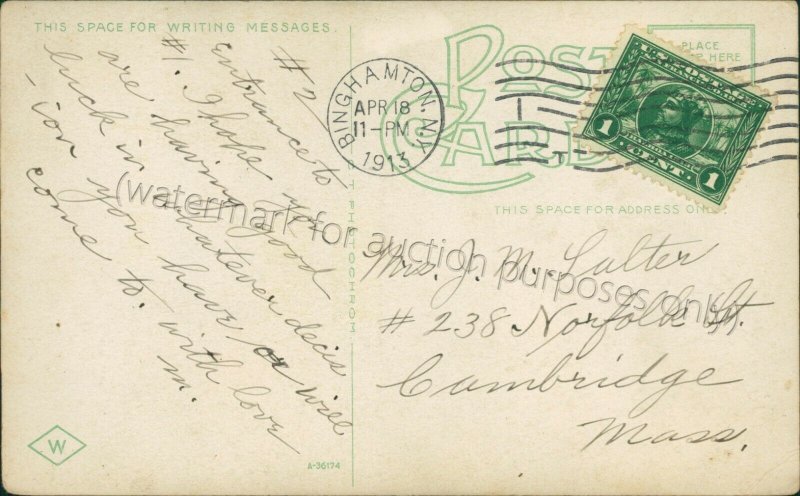 THIS SPACE FOR WRITING MESSAGES.
#2
Entrance to
#1. I hope you
are having good
luck in whatever decis
-ion you have or will
come to. with love
m.
W
A-36174
PHOTOCHROM
BINGHAMTON. N.Y.
APR 18
11-PM
1913
POST CARD
PLACE
HERE
U.S. POSTAGE
1 CENT 1
THIS SPACE FOR ADDRESS ONLY
Mrs. J. M. Salter
# 238 Norfolk St.
Cambridge
Mass.
(watermark for auction purposes only)